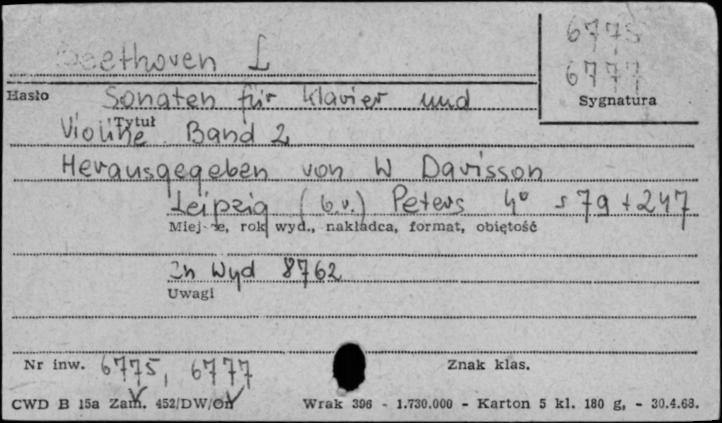 Beethoven L
6775
6777
Hasło
Sygnatura
Sonaten für Klavier und
Tytuł
Violine Band 2
Herausgegeben von W Davisson
Leipzig (b.r.) Peters 4° s 79 + 247
Miejsce, rok wyd., nakładca, format, objętość
Zn Wyd 8762
Uwagi
Nr inw. 6775, 6777
Znak klas.
CWD B 15a Zam. 452/DW/On
Wrak 396 - 1.730.000 - Karton 5 kl. 180 g, - 30.4.68.